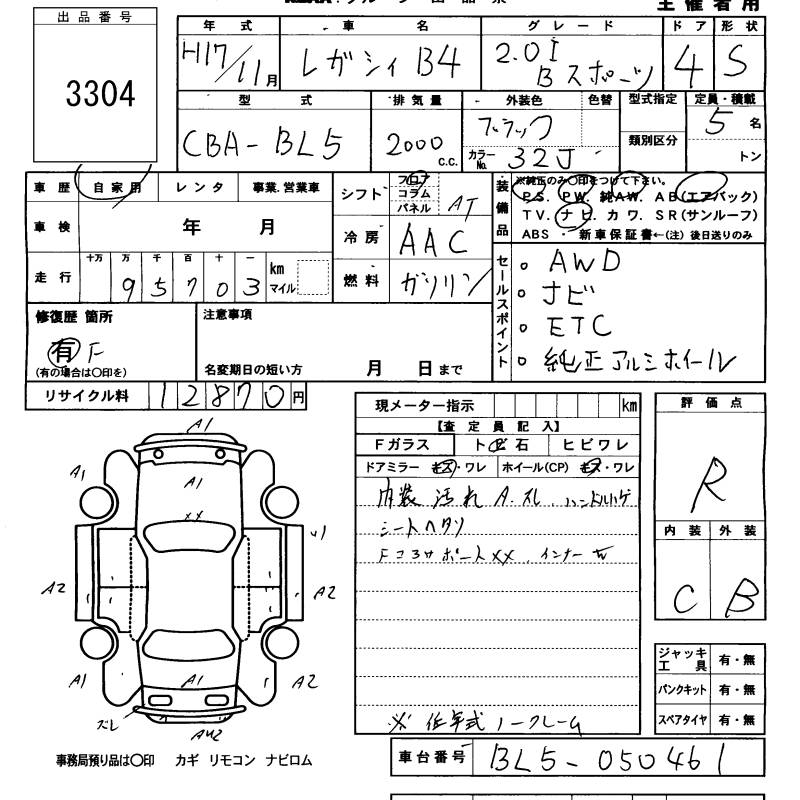 主催者用
出品番号
3304
年式 車名 グレード ドア 形状
H17/11月 レガシィ B4 2.0I Bスポーツ 4 S
型式 排気量 外装色 色替 型式指定 定員・積載
CBA-BL5 2000 c.c. ブラック 5名
カラーNo. 32J 類別区分 トン
車歴 自家用 レンタ 事業.営業車
シフト フロア コラム パネル AT
装備品 ※純正のみ〇印をつけて下さい。
P.S. PW. 純AW. AB(エアバック)
TV. ナビ. カワ. SR(サンルーフ)
ABS ・ 新車保証書←(注)後日送りのみ
車検 年 月
冷房 AAC
走行 十万 万 千 百 十 一
95703 km マイル
燃料 ガソリン
セールスポイント
○ AWD
○ ナビ
○ ETC
○ 純正アルミホイール
修復歴 箇所
有 F
(有の場合は〇印を)
注意事項
名変期日の短い方 月 日まで
リサイクル料 12870円
現メーター指示 km
【査定員記入】
Fガラス ト飛石 ヒビワレ
ドアミラー キズ・ワレ ホイール(CP) キズ・ワレ
内装 汚れ A.スレ ハンドルハゲ
シートヘタリ
Fコアサポートxx. インナーW
※ 低年式ノークレーム
評価点
R
内装 外装
C B
ジャッキ工具 有・無
パンクキット 有・無
スペアタイヤ 有・無
A1
A1
A1
A1
xx
A2
A2
A1
A1
A2
ズレ
AW2
事務局預り品は〇印 カギ リモコン ナビロム
車台番号 BL5-050461